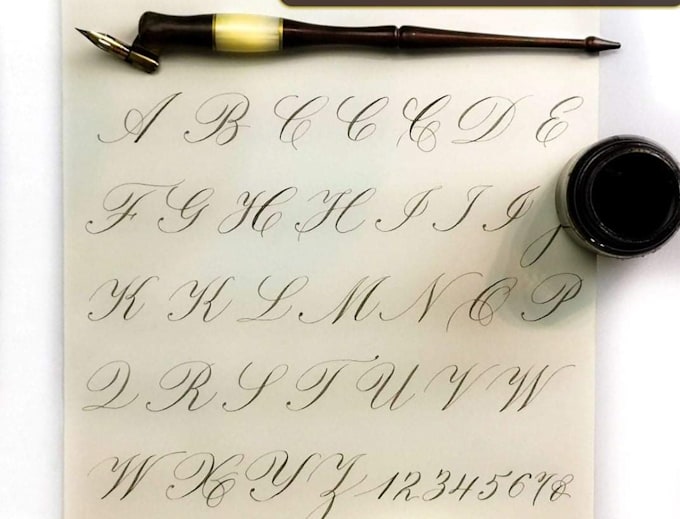 A B C C C D E
F G H H I I I J
K K L M N O P
Q R S T U V W
W X Y Z 12345678